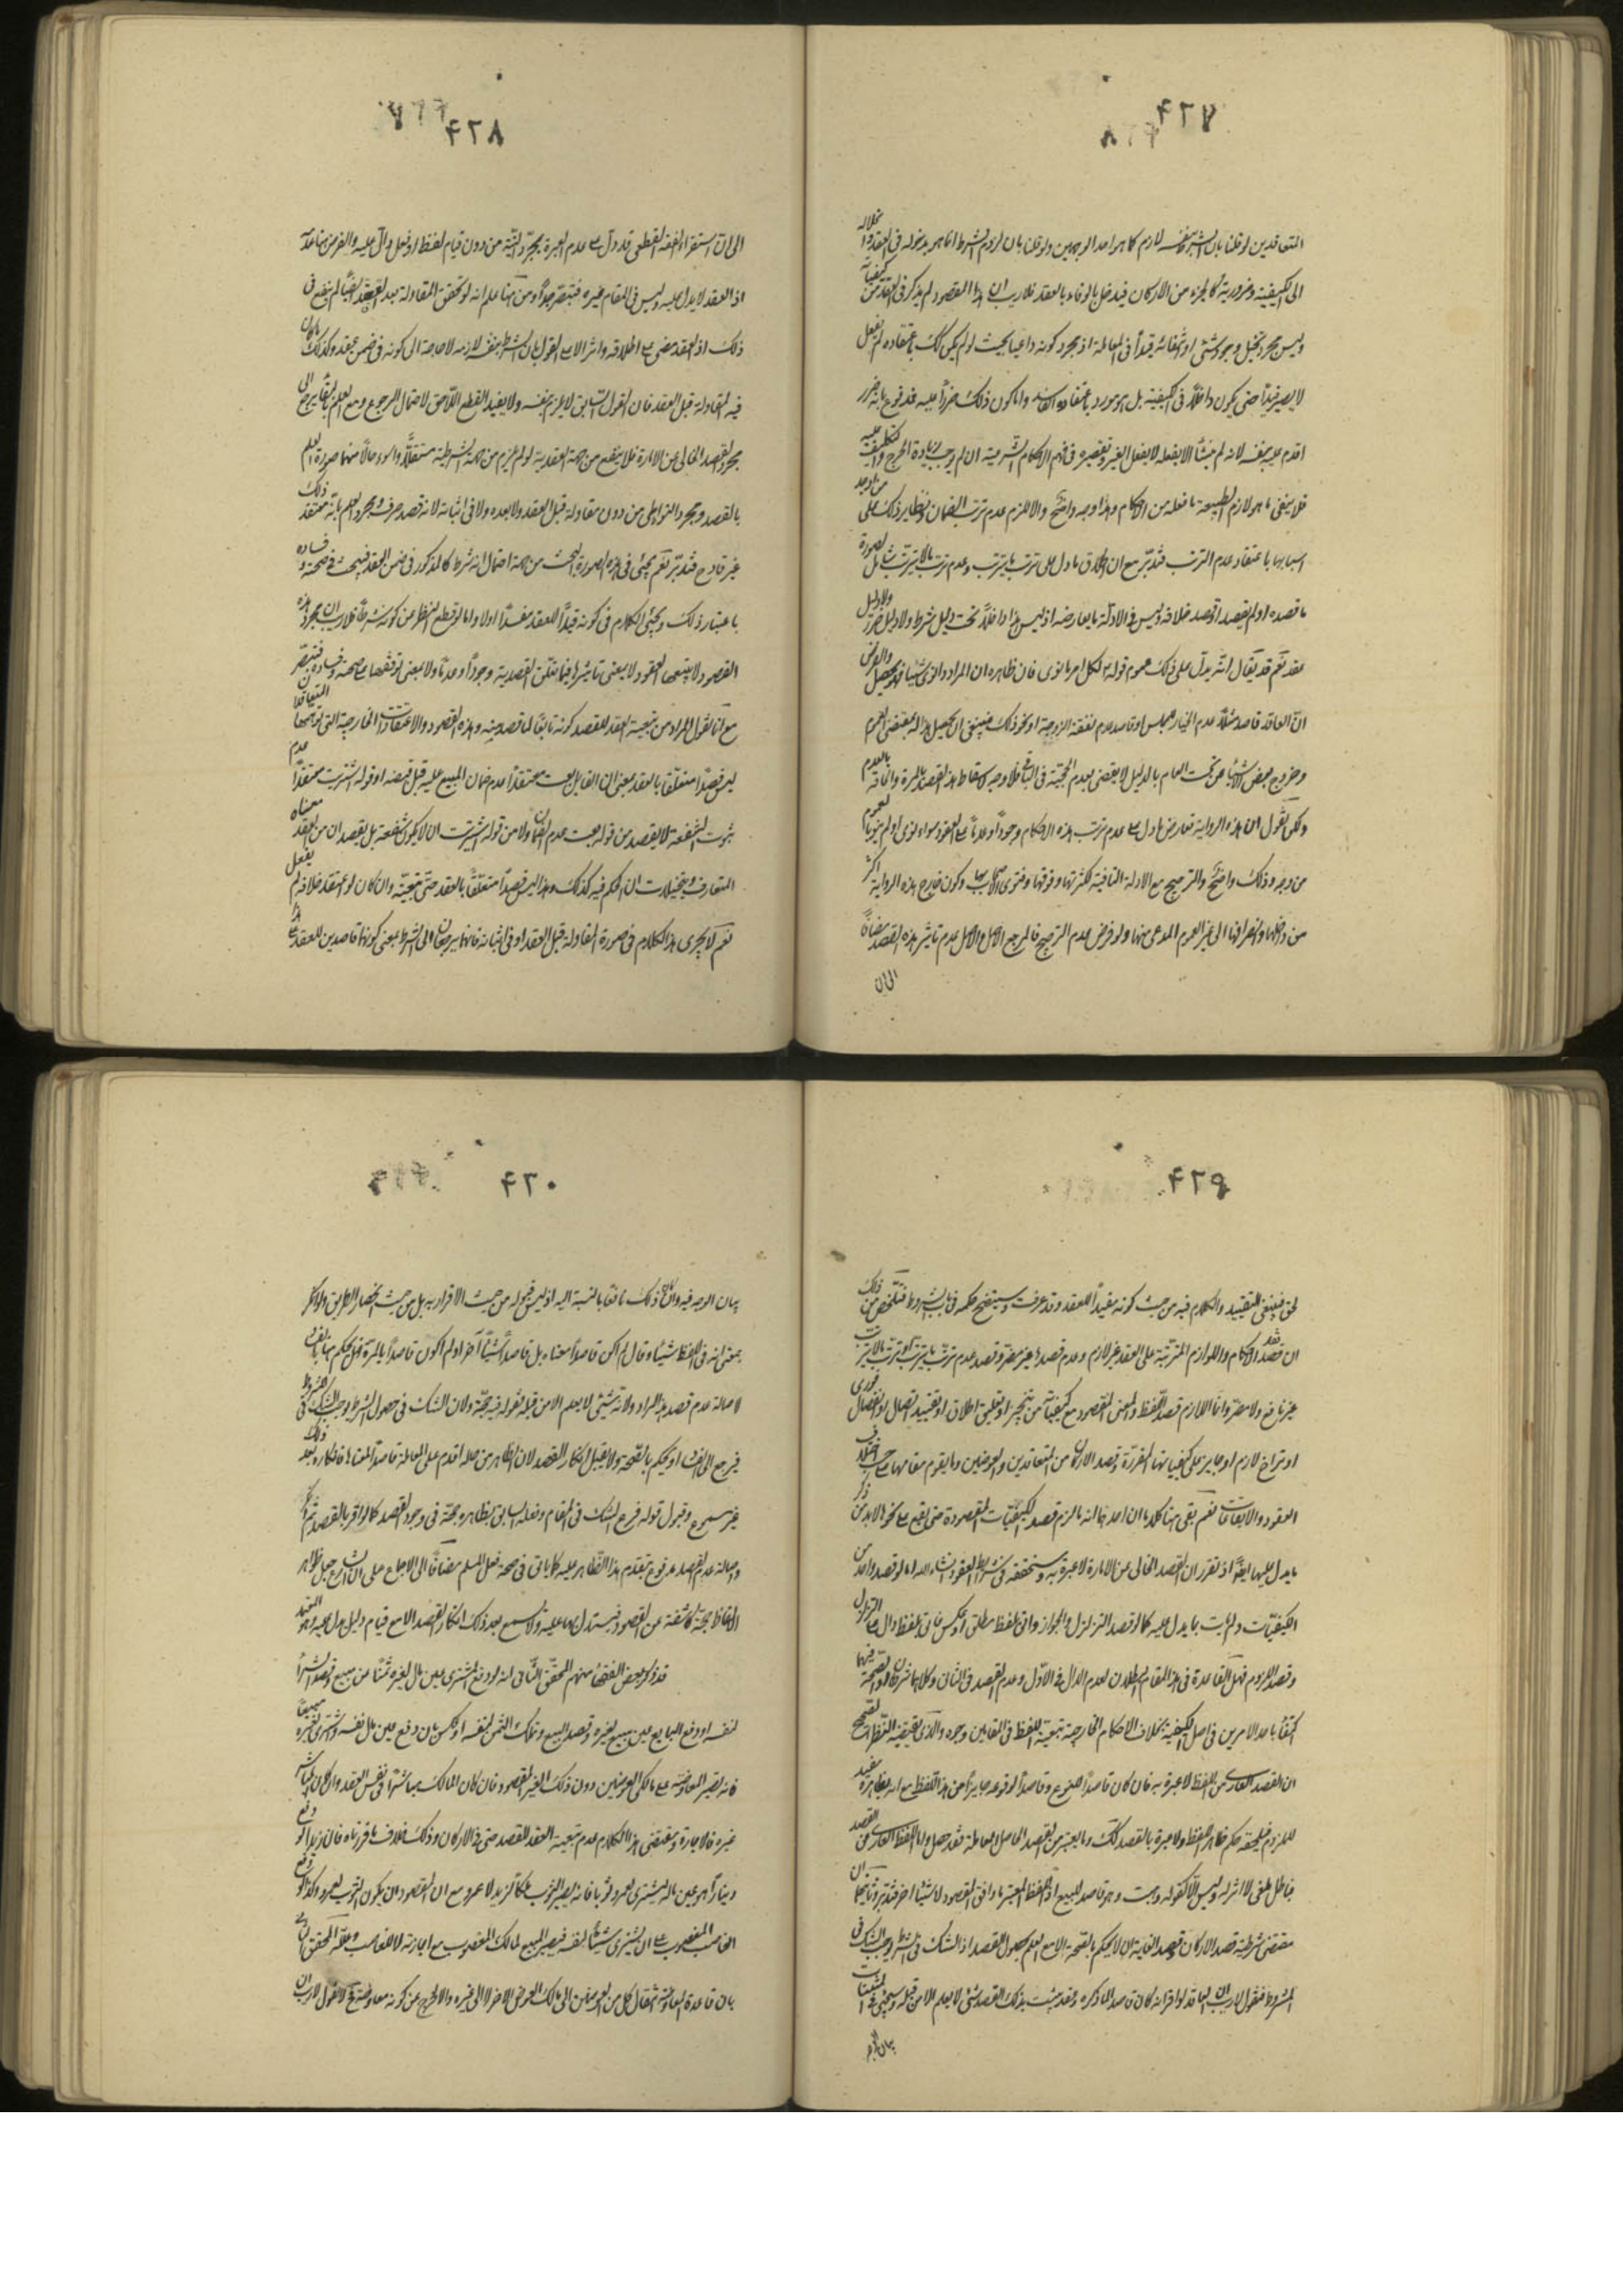 ۴۲۷
المتعاقدين لو قلنا بان الشرط بنفسه لازم كما هو احد الوجهين ولو قلنا بان لزوم الشرط انما هو بدخوله في العقد
الى الكيفية وضرورية كالجزء من الاركان فيدخل بالوفاء بالعقد فلا ريب ان هذا القصود لم يذكر في العقد
وليس مجرد تخيل وجود شئ او انتفائه قيداً في المعاملة اذ مجرد كونه داعيا بحيث لو لم يكن كك باعتقاده لم يفعل
لا يصير قيداً حتى يكون داخلاً في الكيفية بل هو مورد باعتقاده الفاسد واما كون ذلك ضرراً عليه فمدفوع بانه ضرر
اقدم عليه بنفسه لانه لم ينشأ الا بفعله لا بفعل الغير وتقصيره في فهم الاحكام الشرعية ان لم يوجب زيادة الحرج والتكليف عليه
فلا ينفى ما هو لازم لطبيعة ما فعله من الاحكام وهذا وجه واضح والا للزم عدم ترتب الضمان ونظاير ذلك على
اسبابها باعتقاد عدم الترتب فتدبر مع ان اطلاق ما دل على ترتب ما يترتب وعدم ترتب ما لا يترتب شامل لصورة
ما قصده او لم يقصد او قصد خلافه وليس في الادلة ما يعارضه اذ ليس هذا داخلاً تحت دليل شرط ولا دليل ضرر ولا دليل
عقد نعم قد يقال انه يدل على ذلك عموم قوله لكل امرء ما نوى فان ظاهره ان المراد لو نوى شيئا فهو يحصل والفرض
ان العاقد قاصد مثلاً عدم الخيار للمجلس او قاصد عدم نفقة الزوجة او نحو ذلك فينبغي ان يحصل هذا له بمقتضى العموم
وخروج بعض الاشياء من تحت العام بالدليل لا يقضى بعدم الحجية في الباقي فلا وجه لاسقاط هذه القصود بالمرة والحاقه بالعدم
ولكن نقول ان هذه الرواية تعارض ما دل على عدم ترتب هذه الاحكام وجوداً وعدماً على العقود سواء نوى او لم ينو
من وجه وذلك واضح والترجيح مع الادلة النافية لكثرتها وقوتها وفتوى الاصحاب بها وكون خارج هذه الرواية اكثر
من داخلها وانصرافها الى غير العموم المدعى منها ولو فرض عدم الترجيح فالمرجع الاصل والاصل عدم تاثير هذه القصد مضافاً
الى ان
۴۲۸
الى ان استقراء الفقه القطعي قد دل على عدم العبرة بمجرد النية من دون قيام لفظ او فعل دال عليه والفرض هنا عدمه
اذ العقد لا يدل عليه وليس في المقام غيره فتبصر جداً ومن هنا علم انه لو تحقق المقاولة بعد العقد ايضاً لم ينفع في
ذلك اذ العقد مضى على اطلاقه واثر الا على القول بان الشرط بنفسه لازمه لا حاجة الى كونه في ضمن عقد وكذلك
فيه المقاولة قبل العقد فان القول السابق لا يلزم بنفسه ولا يفيد القطع اللاحق لاحتمال الرجوع ومع العلم
مجرد القصد الخالي عن الامارة فلا ينفع من جهة العقدية لو لم يلزم من جهة الشرطية مستقلاً واسوء حالاً منهما صورة العلم
بالقصد ومجرد التواطى من دون مقاولة قبل العقد ولا بعده ولا في اثنائه لانه قصد صرف ومجرد العلم بانه معتقد ذلك
غير قادح فتدبر نعم يجئ في هذه الصورة البحث من جهة احتمال انه شرط كالمذكور في ضمن العقد فيبحث في صحته وفساده
باعتبار ذلك ويجئ الكلام في كونه قيداً للعقد مفسداً اولا واما لو قطع النظر عن كونه شرطاً فلا ريب ان مجرد هذه
القصود لا يتبعها العقود لا بمعنى تاثيرها فيما تعلق القصد به وجوداً وعدماً ولا بمعنى توقفها على صحة وفساده فتبصر
مع انا نقول المراد من تبعية العقد للقصد كونه تابعاً لما قصد منه وهذه القصود والاعتقادات الخارجية التي توهمها المتعاقدان
ليس قصداً متعلقاً بالعقد بمعنى ان القائل بعت معتقداً عدم ضمان المبيع عليه قبل قبضه او قوله اشتريت معتقداً عدم
ثبوت الشفعة لا يقصد من قوله بعت عدم الضمان ولا من قوله اشتريت ان لا يكون شفعة بل يقصدان من العقد معناه
المتعارف ويتخيلان ان الحكم فيه كذلك وهذا ليس قصداً متعلقاً بالعقد حتى يتبعه وان كان لو اعتقد خلافه لم يفعل
نعم لا يجرى هذا الكلام في صورة المقاولة قبل العقد او في اثنائه فانهما يرجعان الى الشرط بمعنى كونهما قاصدين للعقد
۴۲۹
لحق فينبغى التقييد والكلام فيه من حيث كونه مقيداً للعقد وقد عرفت وسيتضح حكمه في باب الشروط فتلخص من ذلك
ان قصد الاحكام واللوازم المترتبة على العقد غير لازم وعدم قصدها غير مضر وقصد عدم ترتب ما يترتب او ترتب ما لا يترتب
غير نافع ولا مضر وانما اللازم قصد اللفظ والمعنى المقصود مع كيفياته من تنجيز او تعليق اطلاق او تقييد اتصال او انفصال
او تراخ لازم او جايز على كيفياتها المقررة وقصد الاركان من المتعاقدين والعوضين وما يقوم مقامها على حسب اختلاف
العقود والايقاعات نعم بقى هنا كلامان احدهما انه ما لزم قصد الكيفيات المقصودة حتى يقع على نحوه لابد من ذكر
ما يدل عليها ايضاً اذ تقرر ان القصد الخالى عن الامارة لا عبرة به وستحققه في شرائط العقود انشاء الله اما لو قصد واحد من
الكيفيات ولم يات بما يدل عليه كما لو قصد التزلزل والجواز واتى بلفظ مطلق او عكس فاتى بلفظ دال على التزلزل
وقصد اللزوم فهل القاعدة في هذا المقام البطلان لعدم الدال في الاول وعدم القصد في الثاني وكلاهما شرطان او الصحة فيهما
اكتفاء باحد الامرين في اصل الكيفية بخلاف الاحكام الخارجية تبعية للفظ في المقامين وجوه والذي يقتضيه النظر الصحيح
ان القصد العاري من اللفظ لا عبرة به فان كان قاصداً للنوع وقاصداً لوقوعه جايزاً من هذا اللفظ مع انه بظاهره مفيد
للزوم فيلحقه حكم ظاهر اللفظ ولا عبرة بالقصد كك وما يعتبر من القصد الحاصل المعاملة فقد حصل واما اللفظ العاري عن القصد
فباطل ملغى لا اثر له وليس الا كقوله وهبت وهو قاصد للبيع اذ اللفظ المعتبر ما وافق المقصود لا شيئا اخر فتدبر وثانيهما ان
مقتضى شرطية قصد الاركان وقصد الغاية ان لا يحكم بالصحة الا مع العلم بحصول القصد اذ الشك في الشرط يوجب الشك في
المشروط فنقول لا ريب ان العاقد لو اقر انه كان قاصداً لما ذكره وقد يثبت بذلك القصد شئ لا يعلم الا من قبله وسيجئ في المثبتات
بيان
۴۳۰
بيان الوجه فيه وان كان ذلك نافعاً بالنسبة اليه اذ ليس قبوله من حيث الاقرار به بل من حيث انحصار الطريق ولو انكر
بمعنى انه في اللفظ شيئا وقال لم اكن قاصداً معناه بل قاصداً شيئاً آخر او لم اكون قاصداً بالمرة فهل يحكم بهذا الفرض
لاصالة عدم قصد هذا المراد ولانه شئ لا يعلم الا من قبله فقوله فيه حجة ولان الشك في حصول الشرط يوجب الشك في المشروط
فيرجع الى الاصل او يحكم بالصحة ولا يقبل انكار القصد لان الظاهر من حاله اقدم على المعاملة قاصداً لمعناها فانكاره بعد ذلك
غير مسموع وقبول قوله فرع الشك في المقام وفعله السابق بظاهره حجة في وجود القصد كما لو اقر بالقصد ثم انكر
واصالة عدم القصد مدفوع بتقدم هذا الظاهر عليه كما ياتى في صحة فعل المسلم مضافاً الى الاجماع على ان الشارع جعل ظواهر
الالفاظ حجة كاشفة عن القصود فيستدل بها عليه ولا يسمع بعد ذلك انكار القصد الا مع قيام دليل يدل عليه
قد ذكر بعض الفقهاء منهم المحقق الثاني انه لو دفع المشترى عين مال لغيره ثمناً عن مبيع وقصد الشراء
لنفسه او دفع البايع عين مبيع لغيره وقصد البيع وتملك الثمن لنفسه او عكس بان دفع عين مال نفسه واشترى لغيره مبيعاً
فانه تصير المعاوضة على مالكي العوضين دون ذلك الغير المقصود فان كان المالك مباشراً في نفس العقد وان كان المباشر
غيره فالاجازة ومقتضى هذا الكلام عدم تبعية العقد للقصد حتى في الاركان وذلك خلاف ما قررناه فان زيداً لو دفع
ديناراً هو عين ماله ليشترى لعمرو ثوبا فانه يصير الثوب ملكاً لزيد لا عمرو مع ان المقصود ان يكون الثوب لعمرو وكذا لو دفع
الغاصب المغصوب على ان يشترى شيئاً لنفسه فيصير المبيع لمالك المغصوب مع اجازته لا للغاصب وعلله المحقق الثاني
بان قاعدة المعاوضة انتقال كل من العوضين الى مالك العوض الاخر لا الى غيره والا لخرج عن كونه معاوضة لا نقول لا ريب ان